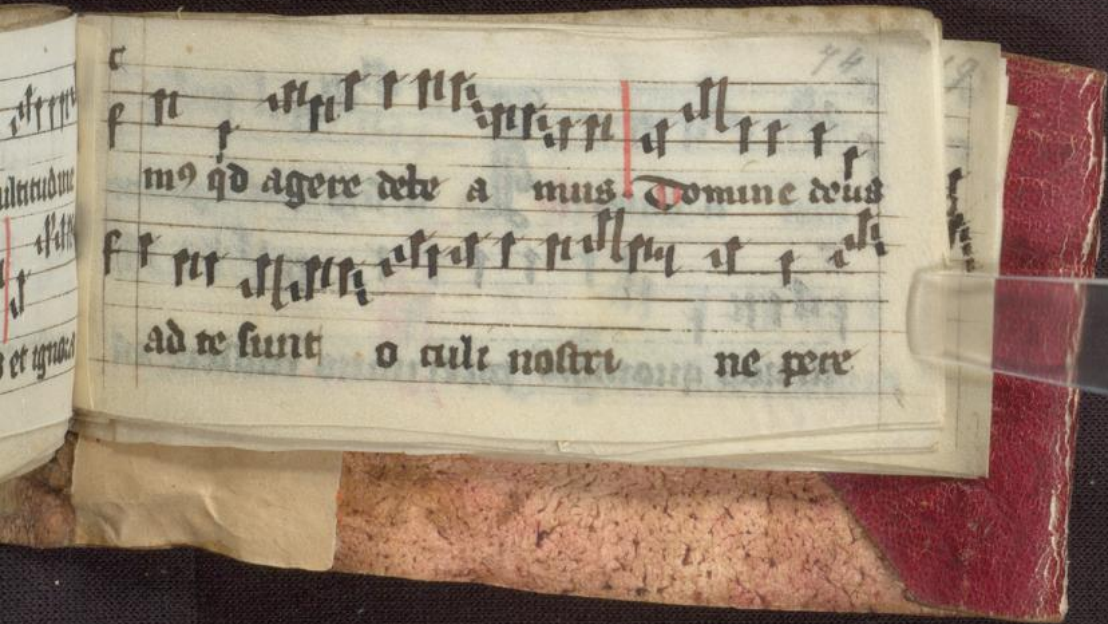 ultitudine
et ignora
74
c
f
mꝰ qd agere debe a mus. Domine deus
f
ad te sunt o culi nostri ne pere